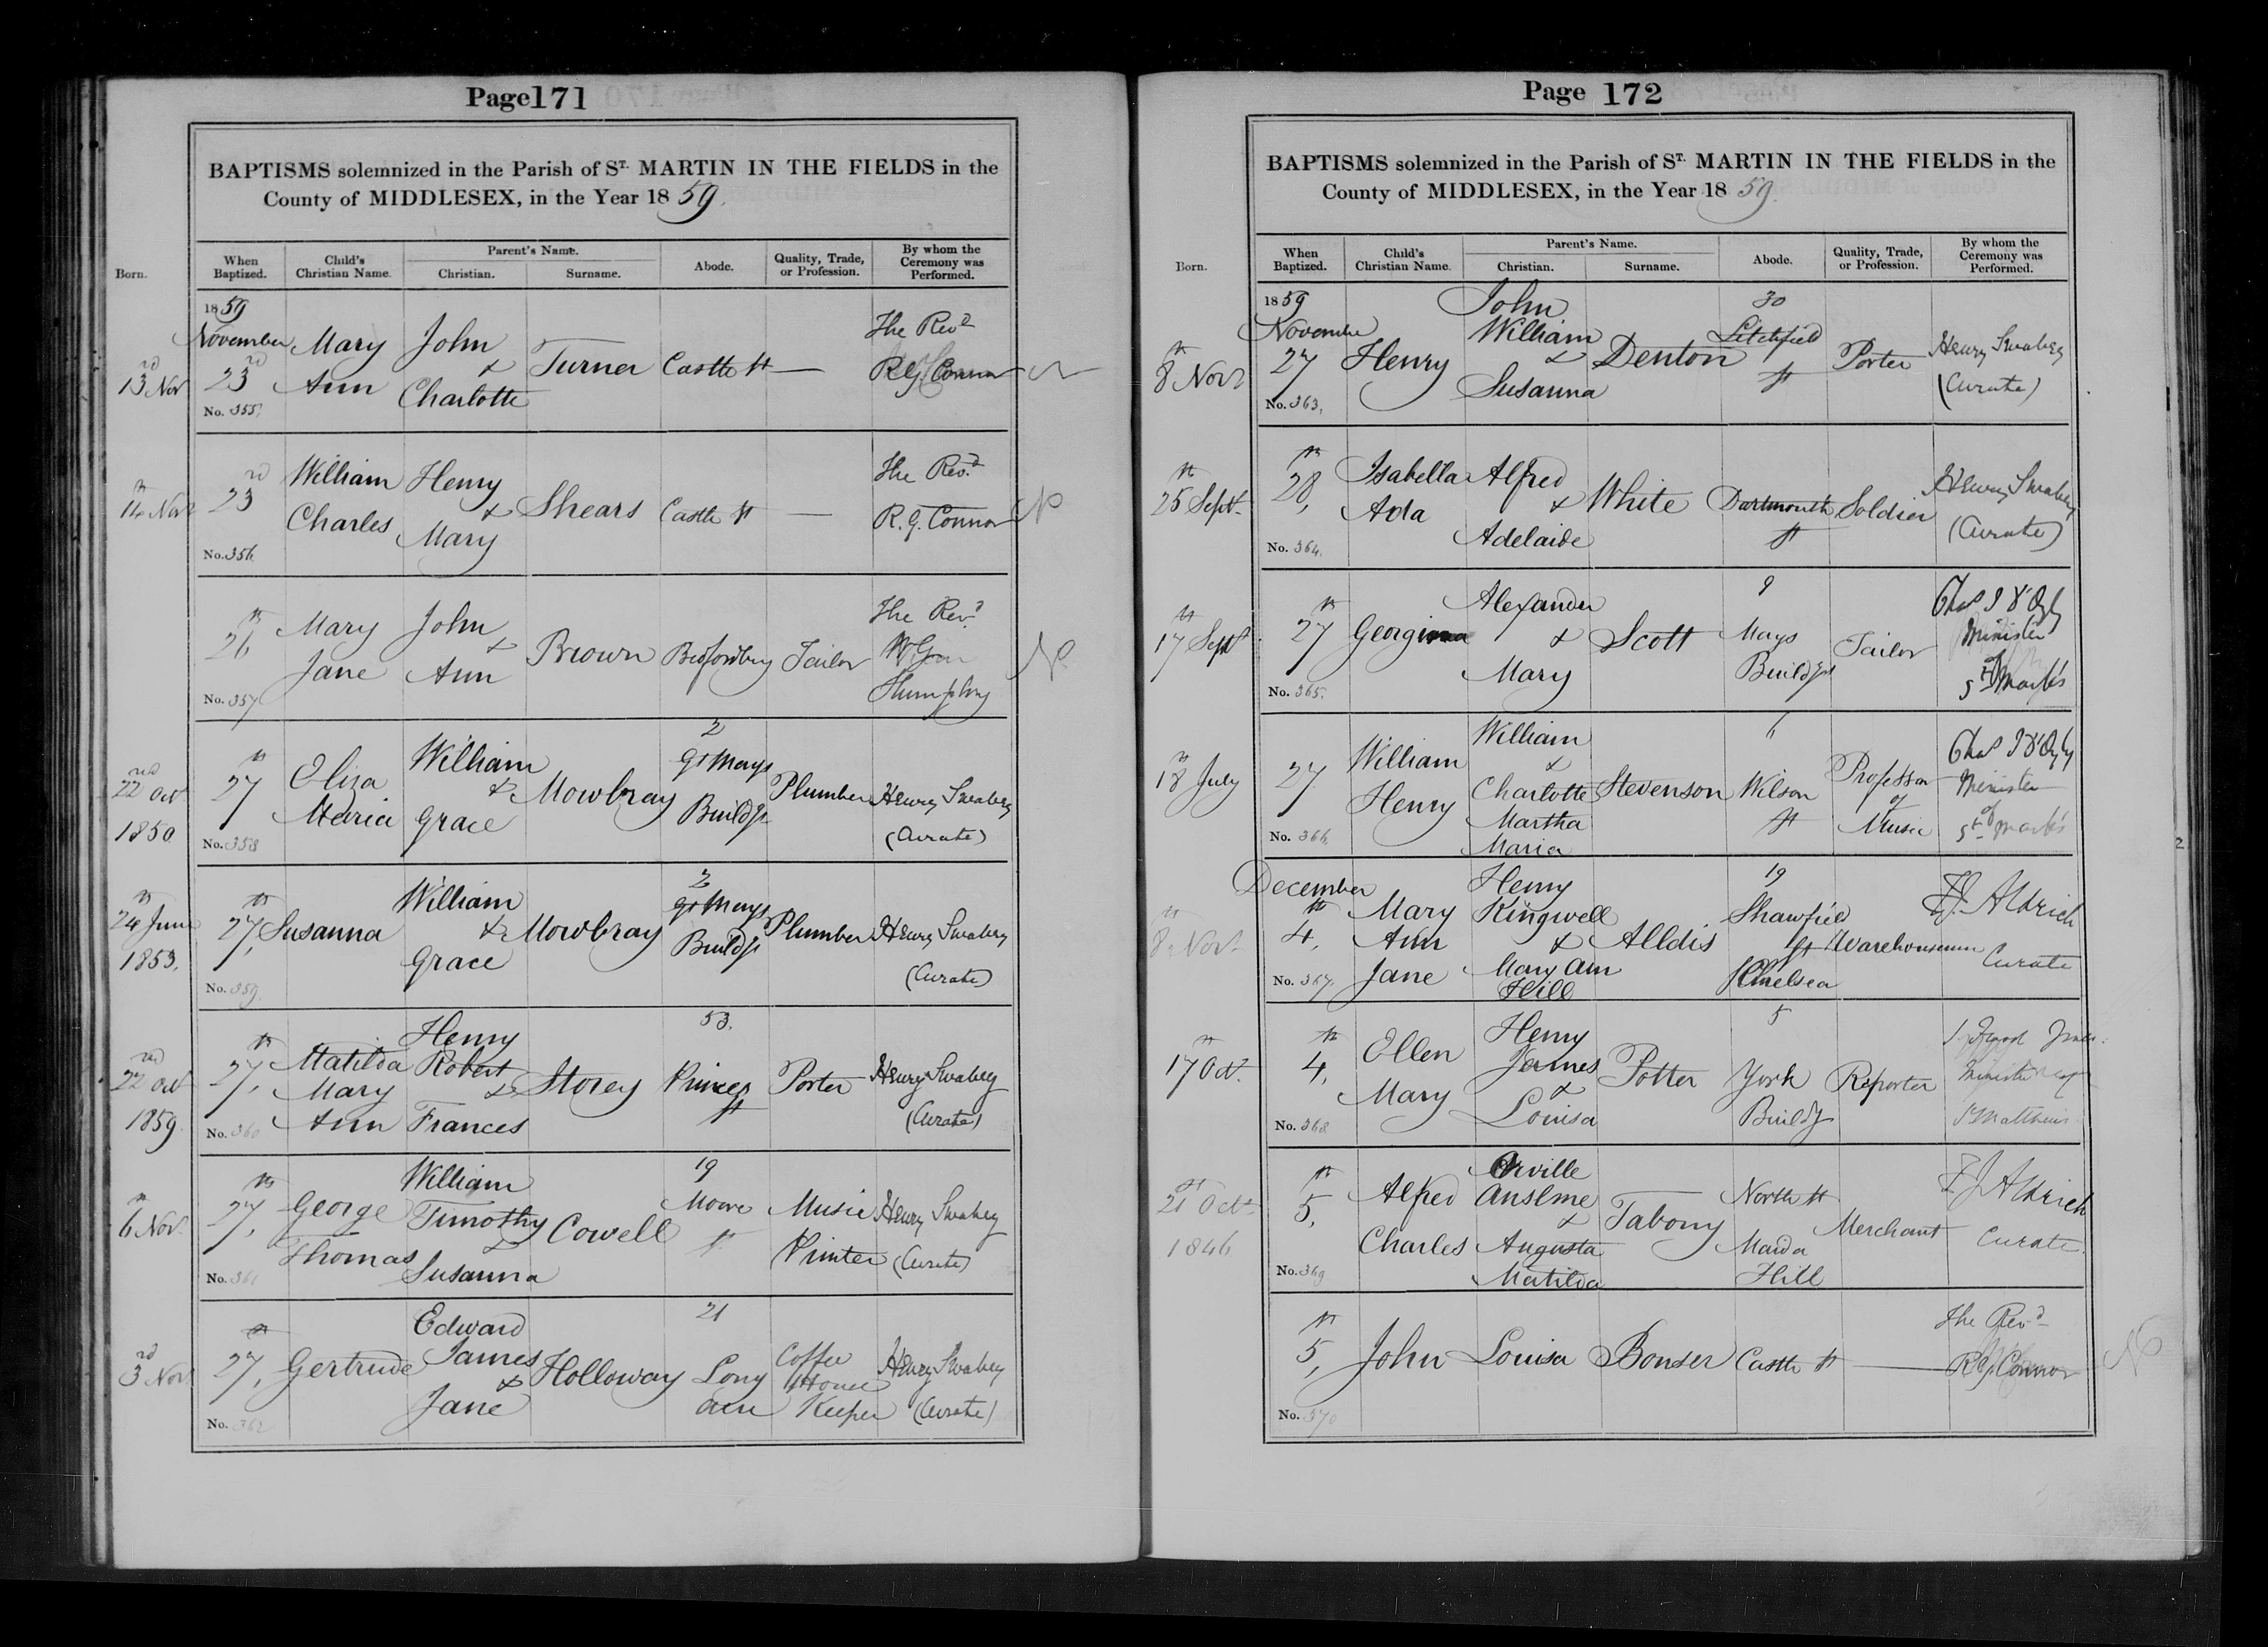 Page 171
BAPTISMS solemnized in the Parish of St. MARTIN IN THE FIELDS in the
County of MIDDLESEX, in the Year 1859.
Born. When Baptized. Child's Christian Name. Parent's Name. Christian. Surname. Abode. Quality, Trade, or Profession. By whom the Ceremony was Performed.
1859
November
13 Nov 23rd Mary Ann John & Charlotte Turner Castle St — The Revd R G Connor
No. 355.
14 Nov 23rd William Charles Henry & Mary Shears Castle St — The Revd. R. G. Connor
No. 356
26th Mary Jane John & Ann Brown Bedfordbury Tailor The Revd Humphry
No. 357
22nd Oct 1850 27th Eliza Maria William & Grace Mowbray 2 Gt Mays Buildgs Plumber Henry Swabey (Curate)
No. 358
24th June 1853. 27th, Susanna William & Grace Mowbray 2 Gt Mays Buildgs Plumber Henry Swabey (Curate)
No. 359.
22nd Oct 1859. 27th, Matilda Mary Ann Henry Robert & Frances Storey 53. Princes St Porter Henry Swabey (Curate)
No. 360
6th Nov. 27th, George Thomas William Timothy & Susanna Cowell 19 Moore St Music Printer Henry Swabey (Curate)
No. 361
3rd Nov 27th, Gertrude Edward James & Jane Holloway 21 Long Acre Coffee House Keeper Henry Swabey (Curate)
No. 362
Page 172
BAPTISMS solemnized in the Parish of St. MARTIN IN THE FIELDS in the
County of MIDDLESEX, in the Year 1859.
Born. When Baptized. Child's Christian Name. Parent's Name. Christian. Surname. Abode. Quality, Trade, or Profession. By whom the Ceremony was Performed.
1859
November
8th Novr 27 Henry John William & Susanna Denton 30 Litchfield St Porter Henry Swabey (Curate)
No. 363.
25th Sept. 28th, Isabella Ada Alfred & Adelaide White Dartmouth St Soldier Henry Swabey (Curate)
No. 364.
17th Sept 27th Georgina Alexander & Mary Scott 9 Mays Buildgs Tailor Chas J D'Oyly Minister of St Mark's
No. 365.
18th July 27 William Henry William & Charlotte Martha Maria Stevenson 6 Wilson St Professor of Music Chas J D'Oyly Minister of St Mark's
No. 366
December
8th Novr 4th, Mary Ann Jane Henry Kingwell & Mary Ann Hill Alldis 19 Shawfield St Chelsea Warehouseman F J. Aldrich Curate
No. 367.
17th Oct. 4th, Ellen Mary Henry James & Louisa Potter 5 York Buildgs Reporter Minister of St Matthew's
No. 368
21st Octr 1846 5th, Alfred Charles Orville Anselme & Augusta Matilda Tabony North St Maida Hill Merchant F J Aldrich Curate.
No. 369
5th, John Louisa Bonser Castle St — The Revd R G. Connor
No. 370